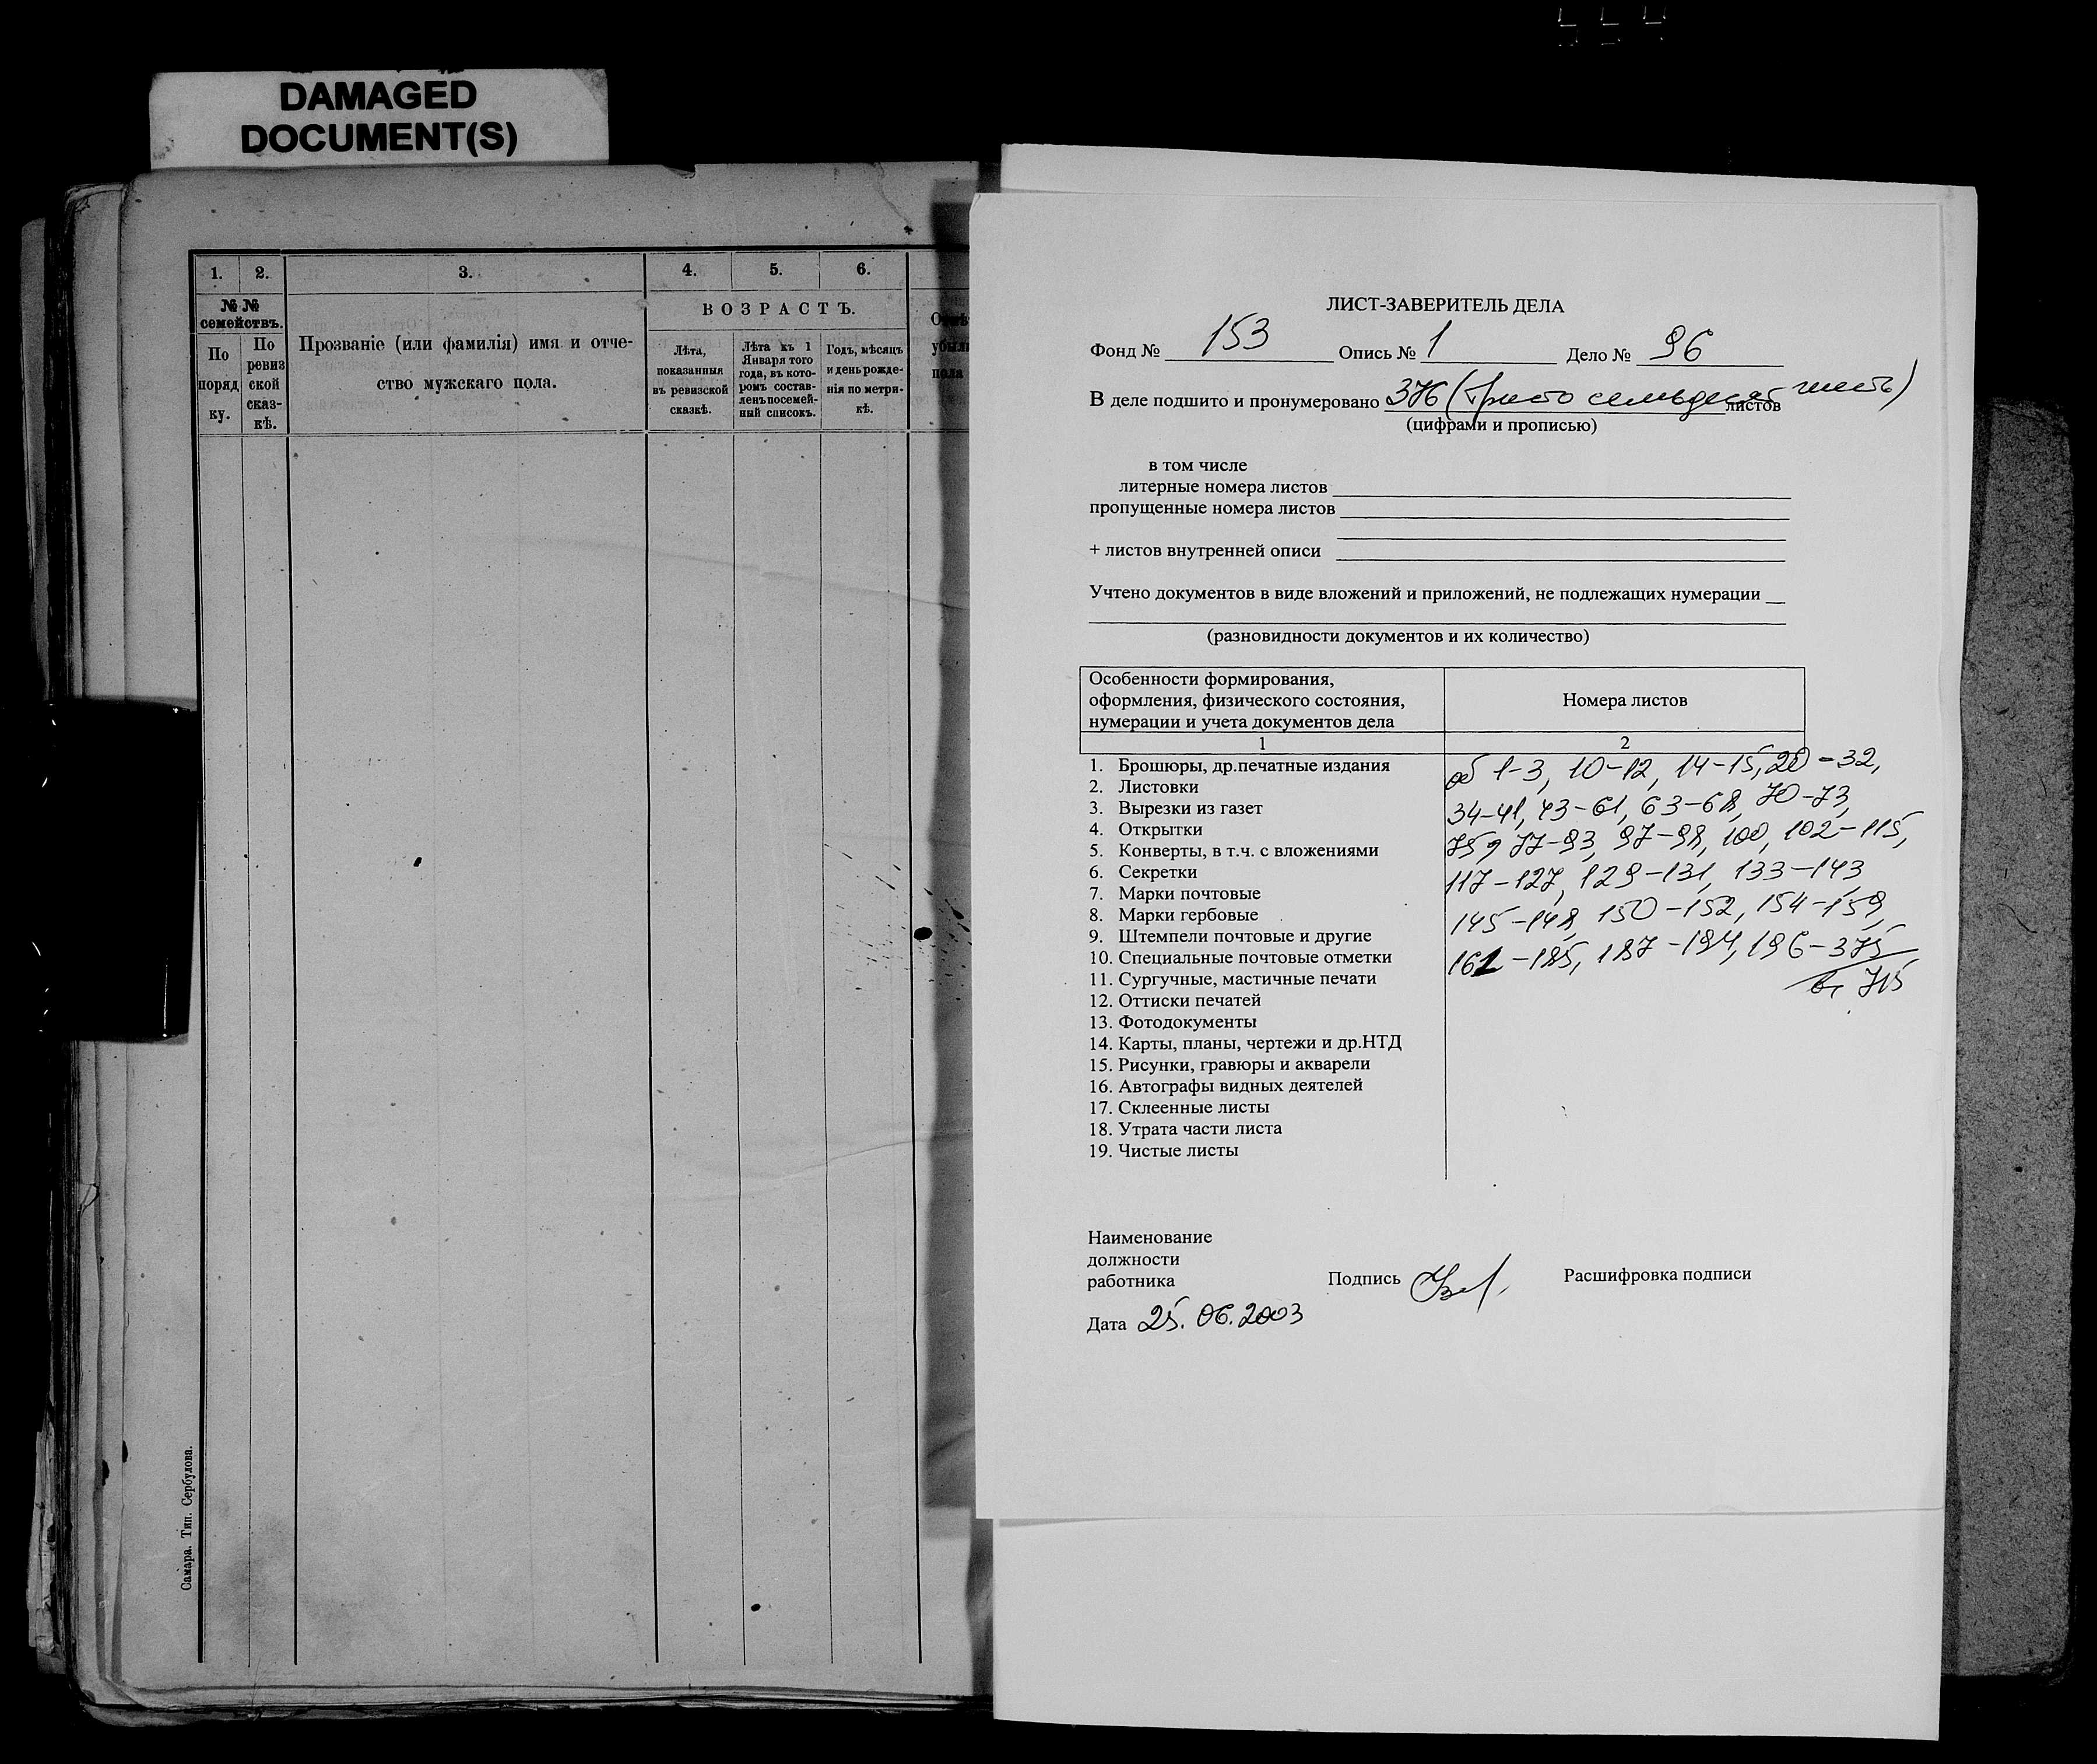 DAMAGED
DOCUMENT(S)
1. 2. 3. 4. 5. 6.
№ №
семействъ.
По
поряд
ку.
По
ревиз
ской
сказ-
кѣ.
Прозваніе (или фамилія) имя и отче-
ство мужскаго пола.
ВОЗРАСТЪ.
Лѣта,
показанныя
въ ревизской
сказкѣ.
Лѣта къ 1
Января того
года, въ кото-
ромъ состав-
ленъ посемей-
ный списокъ.
Годъ, мѣсяцъ
и день рожде-
нія по метри-
кѣ.
Самара. Тип. Сербулова.
ЛИСТ-ЗАВЕРИТЕЛЬ ДЕЛА
Фонд № 153 Опись № 1 Дело № 96
В деле подшито и пронумеровано 376 (Триста семьдесят шесть) листов
(цифрами и прописью)
в том числе
литерные номера листов
пропущенные номера листов
+ листов внутренней описи
Учтено документов в виде вложений и приложений, не подлежащих нумерации
(разновидности документов и их количество)
Особенности формирования,
оформления, физического состояния,
нумерации и учета документов дела
Номера листов
1 2
1. Брошюры, др.печатные издания
2. Листовки
3. Вырезки из газет
4. Открытки
5. Конверты, в т.ч. с вложениями
6. Секретки
7. Марки почтовые
8. Марки гербовые
9. Штемпели почтовые и другие
10. Специальные почтовые отметки
11. Сургучные, мастичные печати
12. Оттиски печатей
13. Фотодокументы
14. Карты, планы, чертежи и др.НТД
15. Рисунки, гравюры и акварели
16. Автографы видных деятелей
17. Склеенные листы
18. Утрата части листа
19. Чистые листы
об 1-3, 10-12, 14-15, 20-32,
34-41, 43-61, 63-68, 70-73,
75, 77-93, 97-98, 100, 102-115,
117-127, 129-131, 133-143
145-148, 150-152, 154-159,
161-185, 187-194, 196-375
Наименование
должности
работника
Подпись
Расшифровка подписи
Дата 25.06.2003